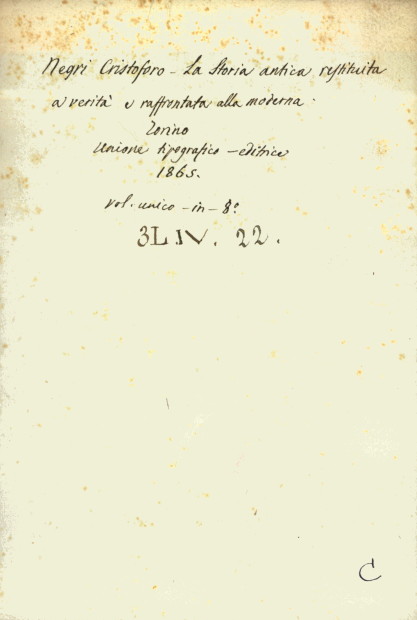 Negri Cristoforo - La Storia antica restituita
a verità e raffrontata alla moderna.
Torino
Unione tipografico - editrice
1865.
vol. unico - in - 8°
3L.IV. 22.
C